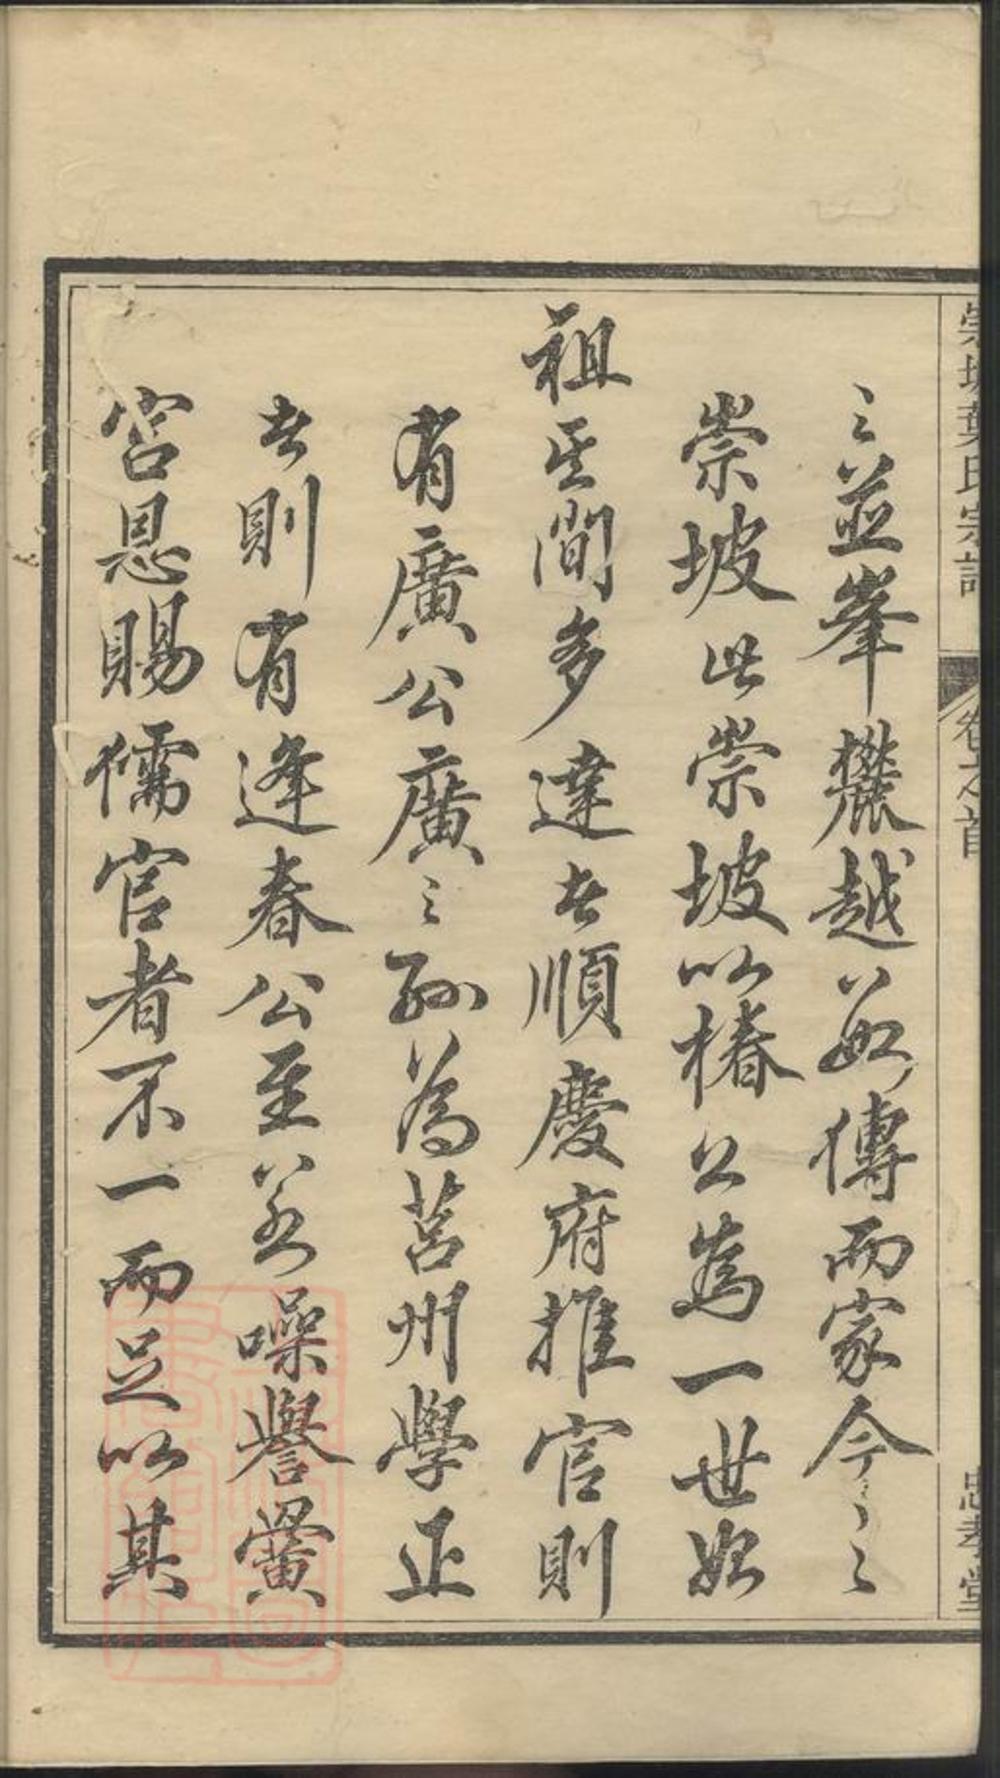 崇坡葉氏宗譜
卷之首
忠孝堂
〻並峯巖越數傳而家今〻〻
崇坡此崇坡以椿公為一世始
祖其間多達者順慶府推官則
有廣公廣〻孫為莒州學正
者則有逢春公至若噪譽黌
宮恩賜儒官者不一而足以其